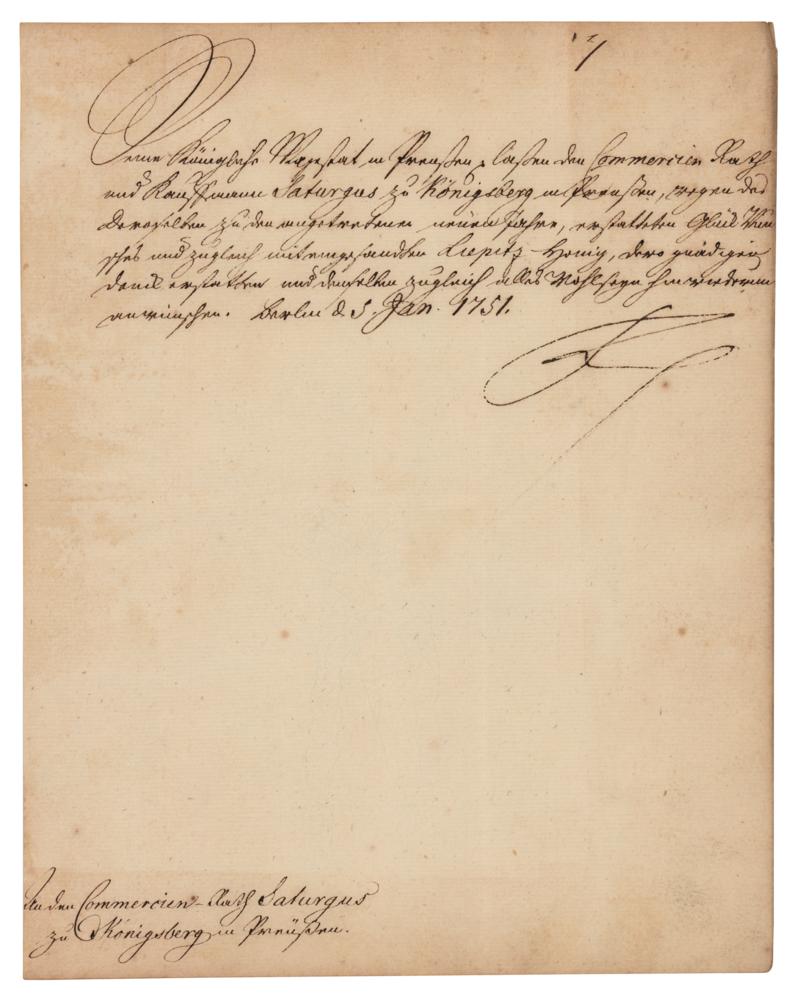 Seine Königliche Majestät in Preußen, laßen dem Commercien Rath
und Kauffmann Saturgus zu Königsberg in Preußen, wegen des
Deroselben zu dem angetretenen neuen Jahre, erstatteten Glück Wun
sches und zugleich mit eingesandten Liepitz-Honig, dero gnädigen
Danck erstatten und demselben zugleich alles Wohlseyn hinwiederum
anwünschen. Berlin d. 5. Jan. 1751.
An den Commercien-Rath Saturgus
zu Königsberg in Preüßen.